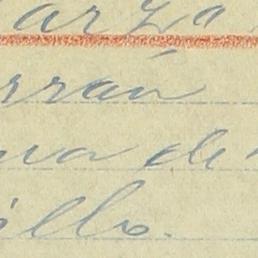 arza
rrán
na de
illo.